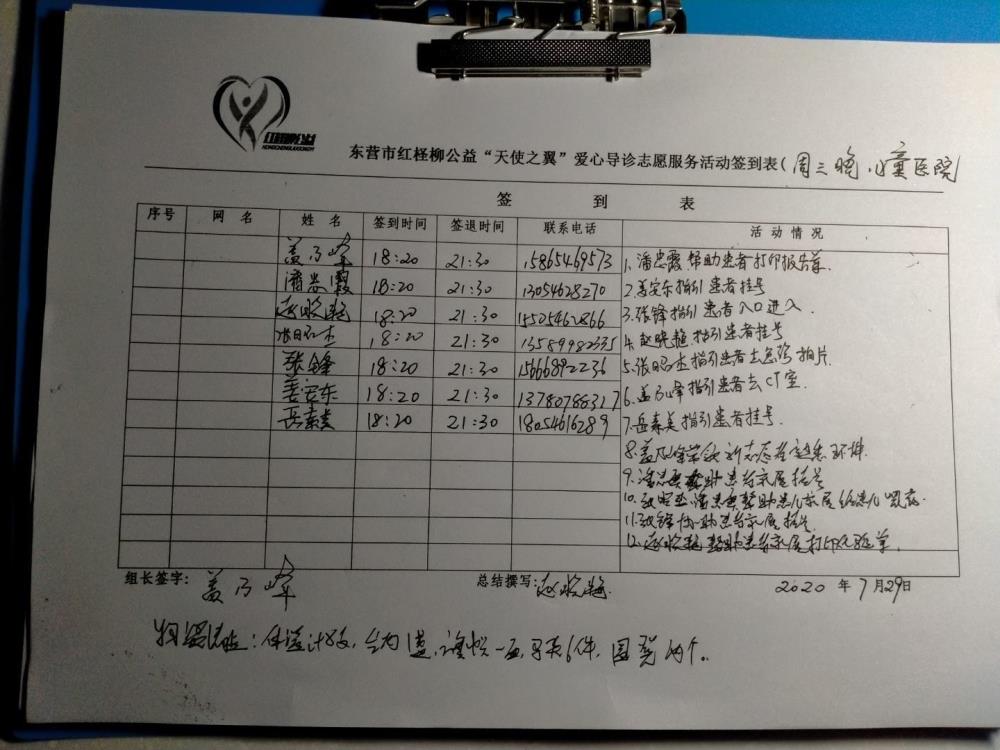 红柽柳公益
东营市红柽柳公益“天使之翼”爱心导诊志愿服务活动签到表(周三晚,儿童医院
签 到 表
序号 网 名 姓 名 签到时间 签退时间 联系电话 活 动 情 况
盖乃峰 18:20 21:30 15865469573
潘忠霞 18:20 21:30 13054628270
赵晓艳 18:20 21:30
张昭杰 18:20 21:30 13589982335
张锋 18:20 21:30 15666892236
姜安东 18:20 21:30 13780788317
岳素美 18:20 21:30 18054616289
1、潘忠霞帮助患者打印报告单.
2、姜安东指引患者挂号
3、张锋指引患者入口进入.
4、赵晓艳指引患者挂号
5、张昭杰指引患者去急诊拍片.
6、盖乃峰指引患者去CT室.
7、岳素美指引患者挂号.
8、盖乃峰带领新志愿者熟悉环境.
9、潘忠霞帮助患者家属挂号
10、张昭杰、潘忠霞帮助患儿家属给患儿喂药.
11、张锋协助患者家属挂号
12、赵晓艳帮助患者家属打印化验单.
组长签字: 盖乃峰 总结撰写: 赵晓艳 2020 年 7 月 29 日